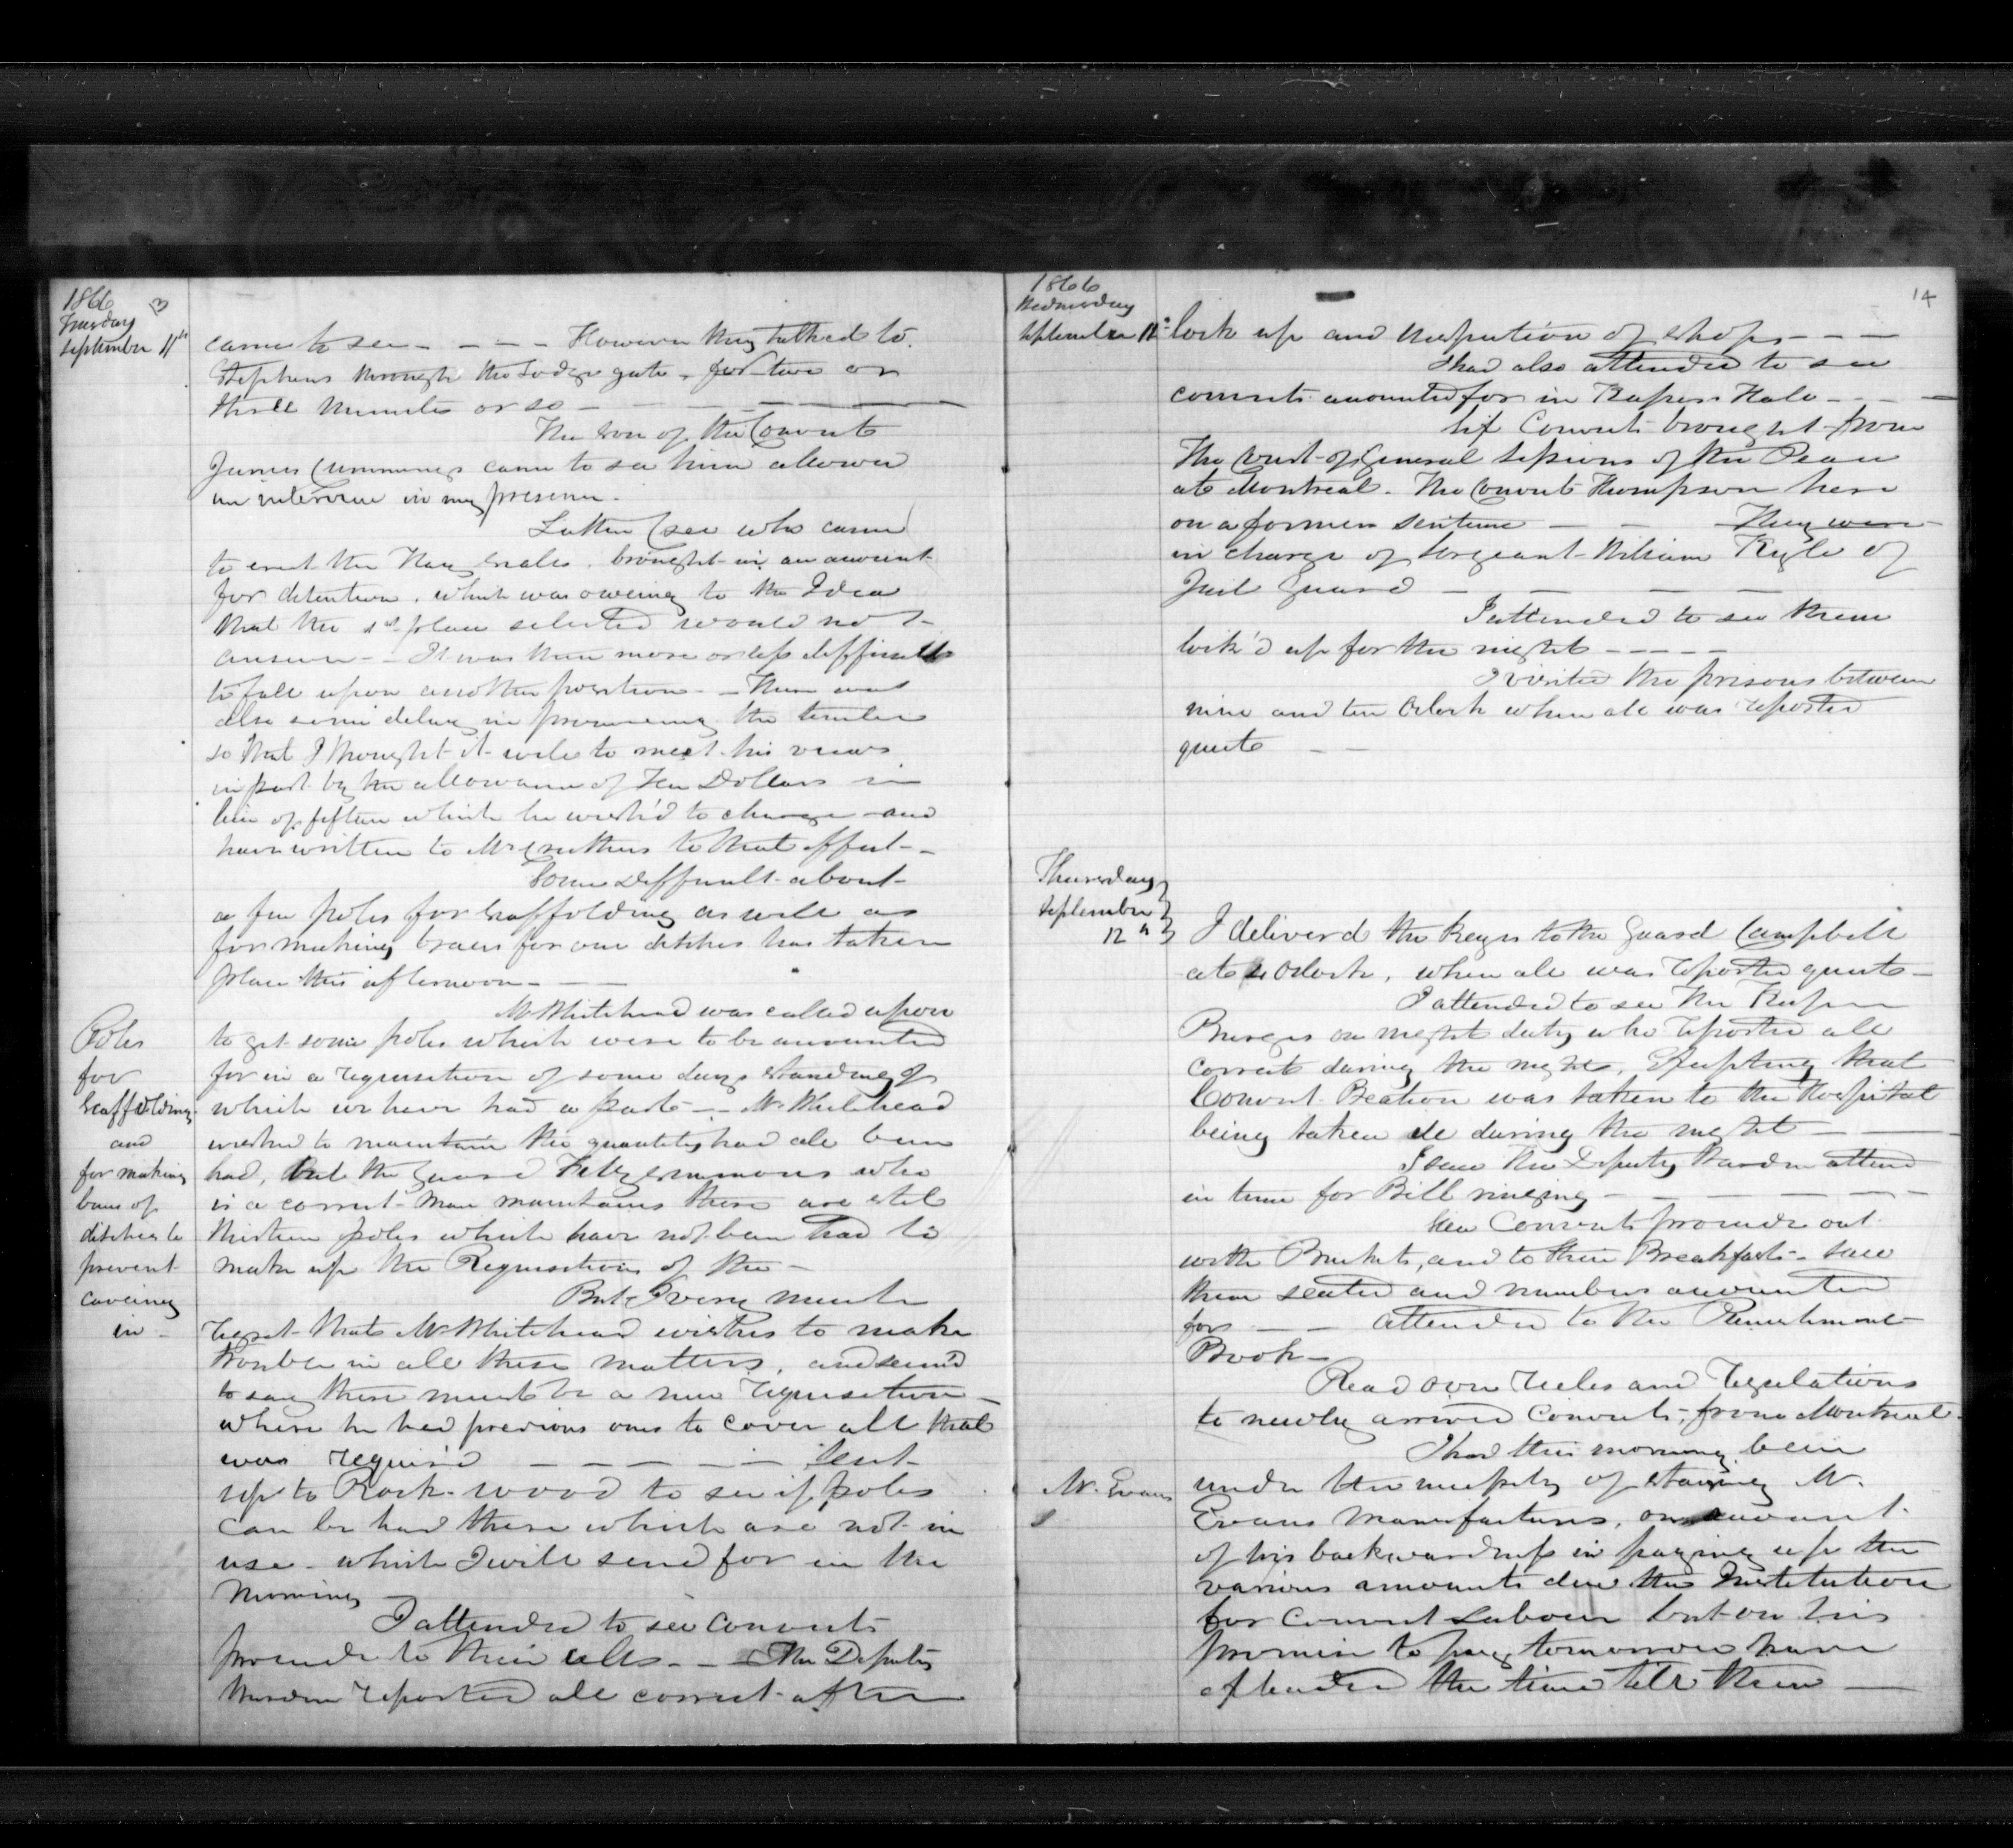 1866
Tuesday
September 11th
came to see - - - - However they talked to
Stephens through the Lodge gate - for two or
three minutes or so -
The Son of the Convict
James Cummings came to see him allowed
an interview in my presence -
Latter (see who came
to erect the Hay Scales, brought in an account
for detention, which was oweing to the Idea
that the 1st place selected would not
answer - It was then more or less difficult
to fall upon another position - There was
also some delay in procureing the timber
so that I thought it well to meet his views
in part by the allowance of Ten Dollars in
lieu of fifteen which he wish'd to charge and
have written to Mr Cruthers to that effect -
Some Difficult about
a few poles for scaffolding as well as
for making braces for our ditches has taken
place this afternoon - -
Mr Whitehead was called upon
Poles
for
Scaffolding
and
for making
of
ditches to
prevent
caveing
in -
to get some poles which were to be accounted
for in a requisition of some days standing of
which we have had a part - - Mr Whitehead
wished to maintain the quantity had all been
had, but the Guard Fitzgemmons who
is a correct man maintains there are still
thirteen poles which have not been had to
make up the Requisition of the -
But I very much
regret that Mr Whitehead wishes to make
trouble in all these matters, and seem'd
to say there must be a new requisition -
where he had previous ones to cover all that
was requir'd - - - - - Sent
up to Rock-wood to see if poles
can be had there which are not in
use - which I will send for in the
morning
I attended to see Convicts
proceed to their cells - - The Deputy
Warden reported all correct after
1866
Wednesday
September
14
lock up and inspection of shops - - -
I had also attended to see
convicts accounted for in Keepers Hall - - -
Six Convicts brought from
The Court of General Sessions of the Peace
at Montreal. The Convict Thompson here
on a former sentence - - They were
in charge of Sergeant William Kyle of
Jail Guard - - - -
I attended to see them
lock'd up for the night - - - - -
I visited the prisons between
nine and ten Oclock when all was reported
quiet - -
Thursday
September
12th
I deliverd the keys to the Guard Campbell
at Oclock, when all was reported quiet -
I attended to see the Keeper
Burgess on night duty who reported all
correct during the night, Excepting that
Convict Beation was taken to the Hospital
being taken ill during the night -
I saw the Deputy Warden attend
in time for Bell ringing - - - - -
Saw Convicts proceed out
with Buckets, and to their Breakfasts - saw
them seated and numbers accounted
for - - attended to the Punishment
Book -
Read over rules and regulations
to newly arrived Convicts, from Montreal -
I had this morning been
Mr. Evans
under the necessity of staying Mr.
Evans Manufactures, on account
of his backwardness in paying up the
various amounts due this Institution
for Convict Labour but on his
promise to pay tomorrow have
extended the time till then -